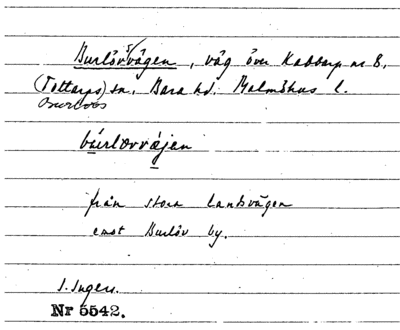 Burlövsvägen, väg över Kabbarp nr 8,
(Tottarps) sn, Bara hd. Malmöhus l.
Burlövs
bɑ́urlǝvvæjen
från stora landsvägen
emot Burlöv by.
I. Ingers.
Nr 5542.